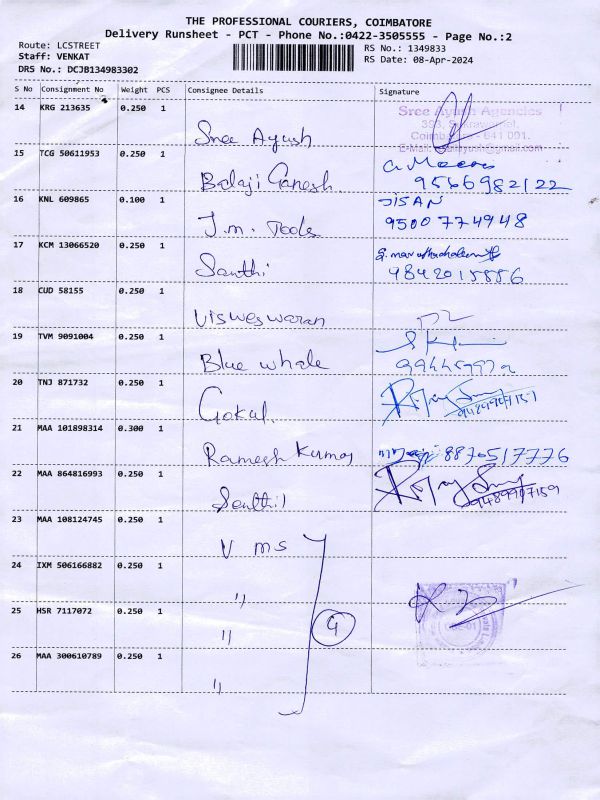 THE PROFESSIONAL COURIERS, COIMBATORE
Delivery Runsheet - PCT - Phone No.:0422-3505555 - Page No.:2
Route: LCSTREET
RS No.: 1349833
Staff: VENKAT
RS Date: 08-Apr-2024
DRS No.: DCJB134983302
S No Consignment No Weight PCS Consignee Details Signature
14 KRG 213635 0.250 1
Sree Ayush Agencies
641 001.
Sree Ayush
15 TCG 50611953 0.250 1
Balaji Ganesh 9566982122
16 KNL 609865 0.100 1 JISAN
J.m. Tools 9500774948
17 KCM 13066520 0.250 1
Santhi 9842015886
18 CUD 58155 0.250 1
Visweswaran
19 TVM 9091004 0.250 1
Blue whale
20 TNJ 871732 0.250 1
Gokul.
21 MAA 101898314 0.300 1
Ramesh Kumar 8870517776
22 MAA 864816993 0.250 1
Senthil 9489907159
23 MAA 108124745 0.250 1
V ms
24 IXM 506166882 0.250 1
"
25 HSR 7117072 0.250 1
" 4
26 MAA 300610789 0.250 1
"